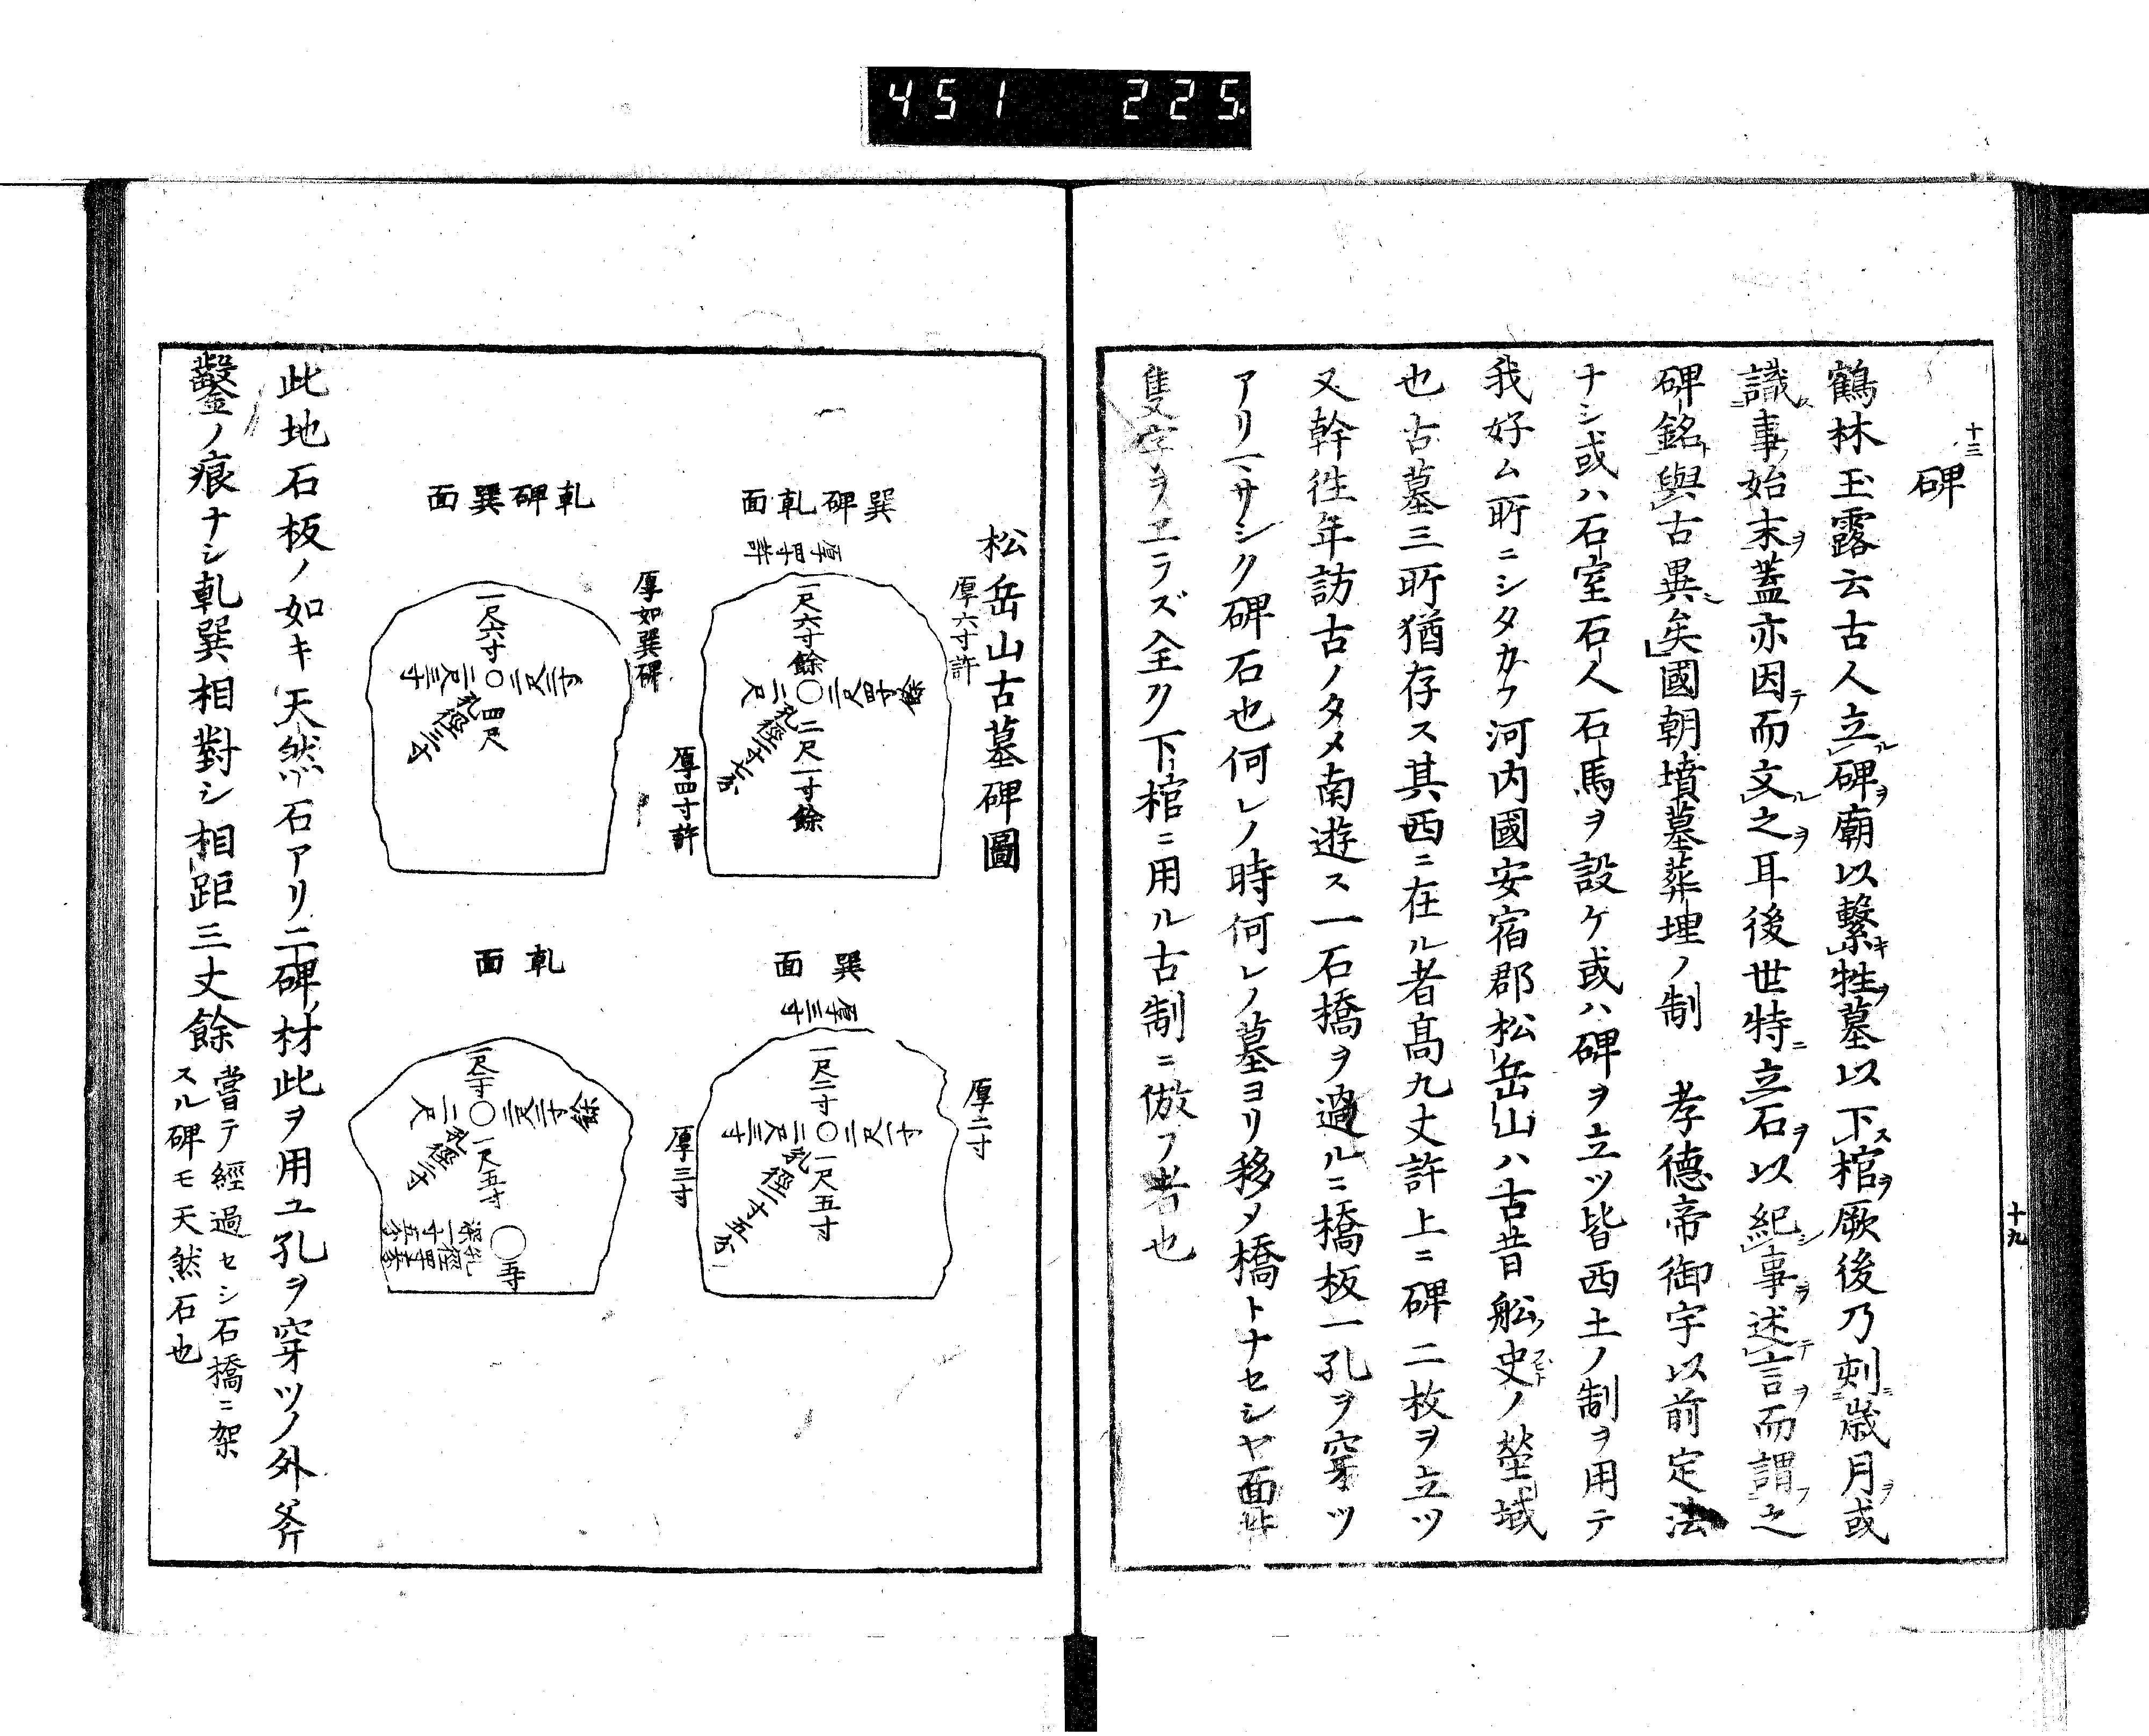 451 225
十三
碑
十九
鶴林玉露云古人立ル碑ヲ廟以繫キ牲ヲ墓以下ス棺ヲ厥後乃刻ニ歳月ヲ或
識ス事ノ始末ヲ蓋亦因テ而文ル之ヲ耳後世特ニ立石ヲ以紀シ事ヲ述テ言ヲ而謂フ之
碑銘ト與古異ニ矣國朝墳墓葬埋ノ制 孝德帝御宇以前定法
ナシ或ハ石室石人石馬ヲ設ケ或ハ碑ヲ立ツ皆西土ノ制ヲ用テ
我好ム所ニシタカフ河内國安宿郡松岳山ハ古昔舩史ノ塋域
也古墓三所猶存ス其西ニ在ル者髙九丈許上ニ碑二枚ヲ立ツ
又幹徃年訪古ノタメ南遊ス一石橋ヲ過ルニ橋板一孔ヲ穿ツ
アリマサシク碑石也何レノ時何レノ墓ヨリ移メ橋トナセシヤ面背
隻字ヲヱラズ全ク下棺ニ用ル古制ニ倣フ者也
松岳山古墓碑圖
巽碑乹面
厚四寸許
厚六寸許
一尺六寸餘
二尺四寸餘
二尺
孔徑一寸七分
二尺一寸餘
厚四寸許
乹碑巽面
厚如巽碑
一尺六寸
二尺三寸
二尺三寸
孔徑二寸
四尺
巽面
厚三寸
厚二寸
一尺二寸
二尺二寸
二尺三寸
孔徑一寸五分
一尺五寸
厚三寸
乹面
二尺
孔徑二寸
一尺五寸
五寸
此地石板ノ如キ天然石アリ二碑ノ材此ヲ用ユ孔ヲ穿ツノ外斧
鑿ノ痕ナシ乹巽相對シ相距三丈餘
嘗テ經過セシ石橋ニ架
スル碑モ天然石也